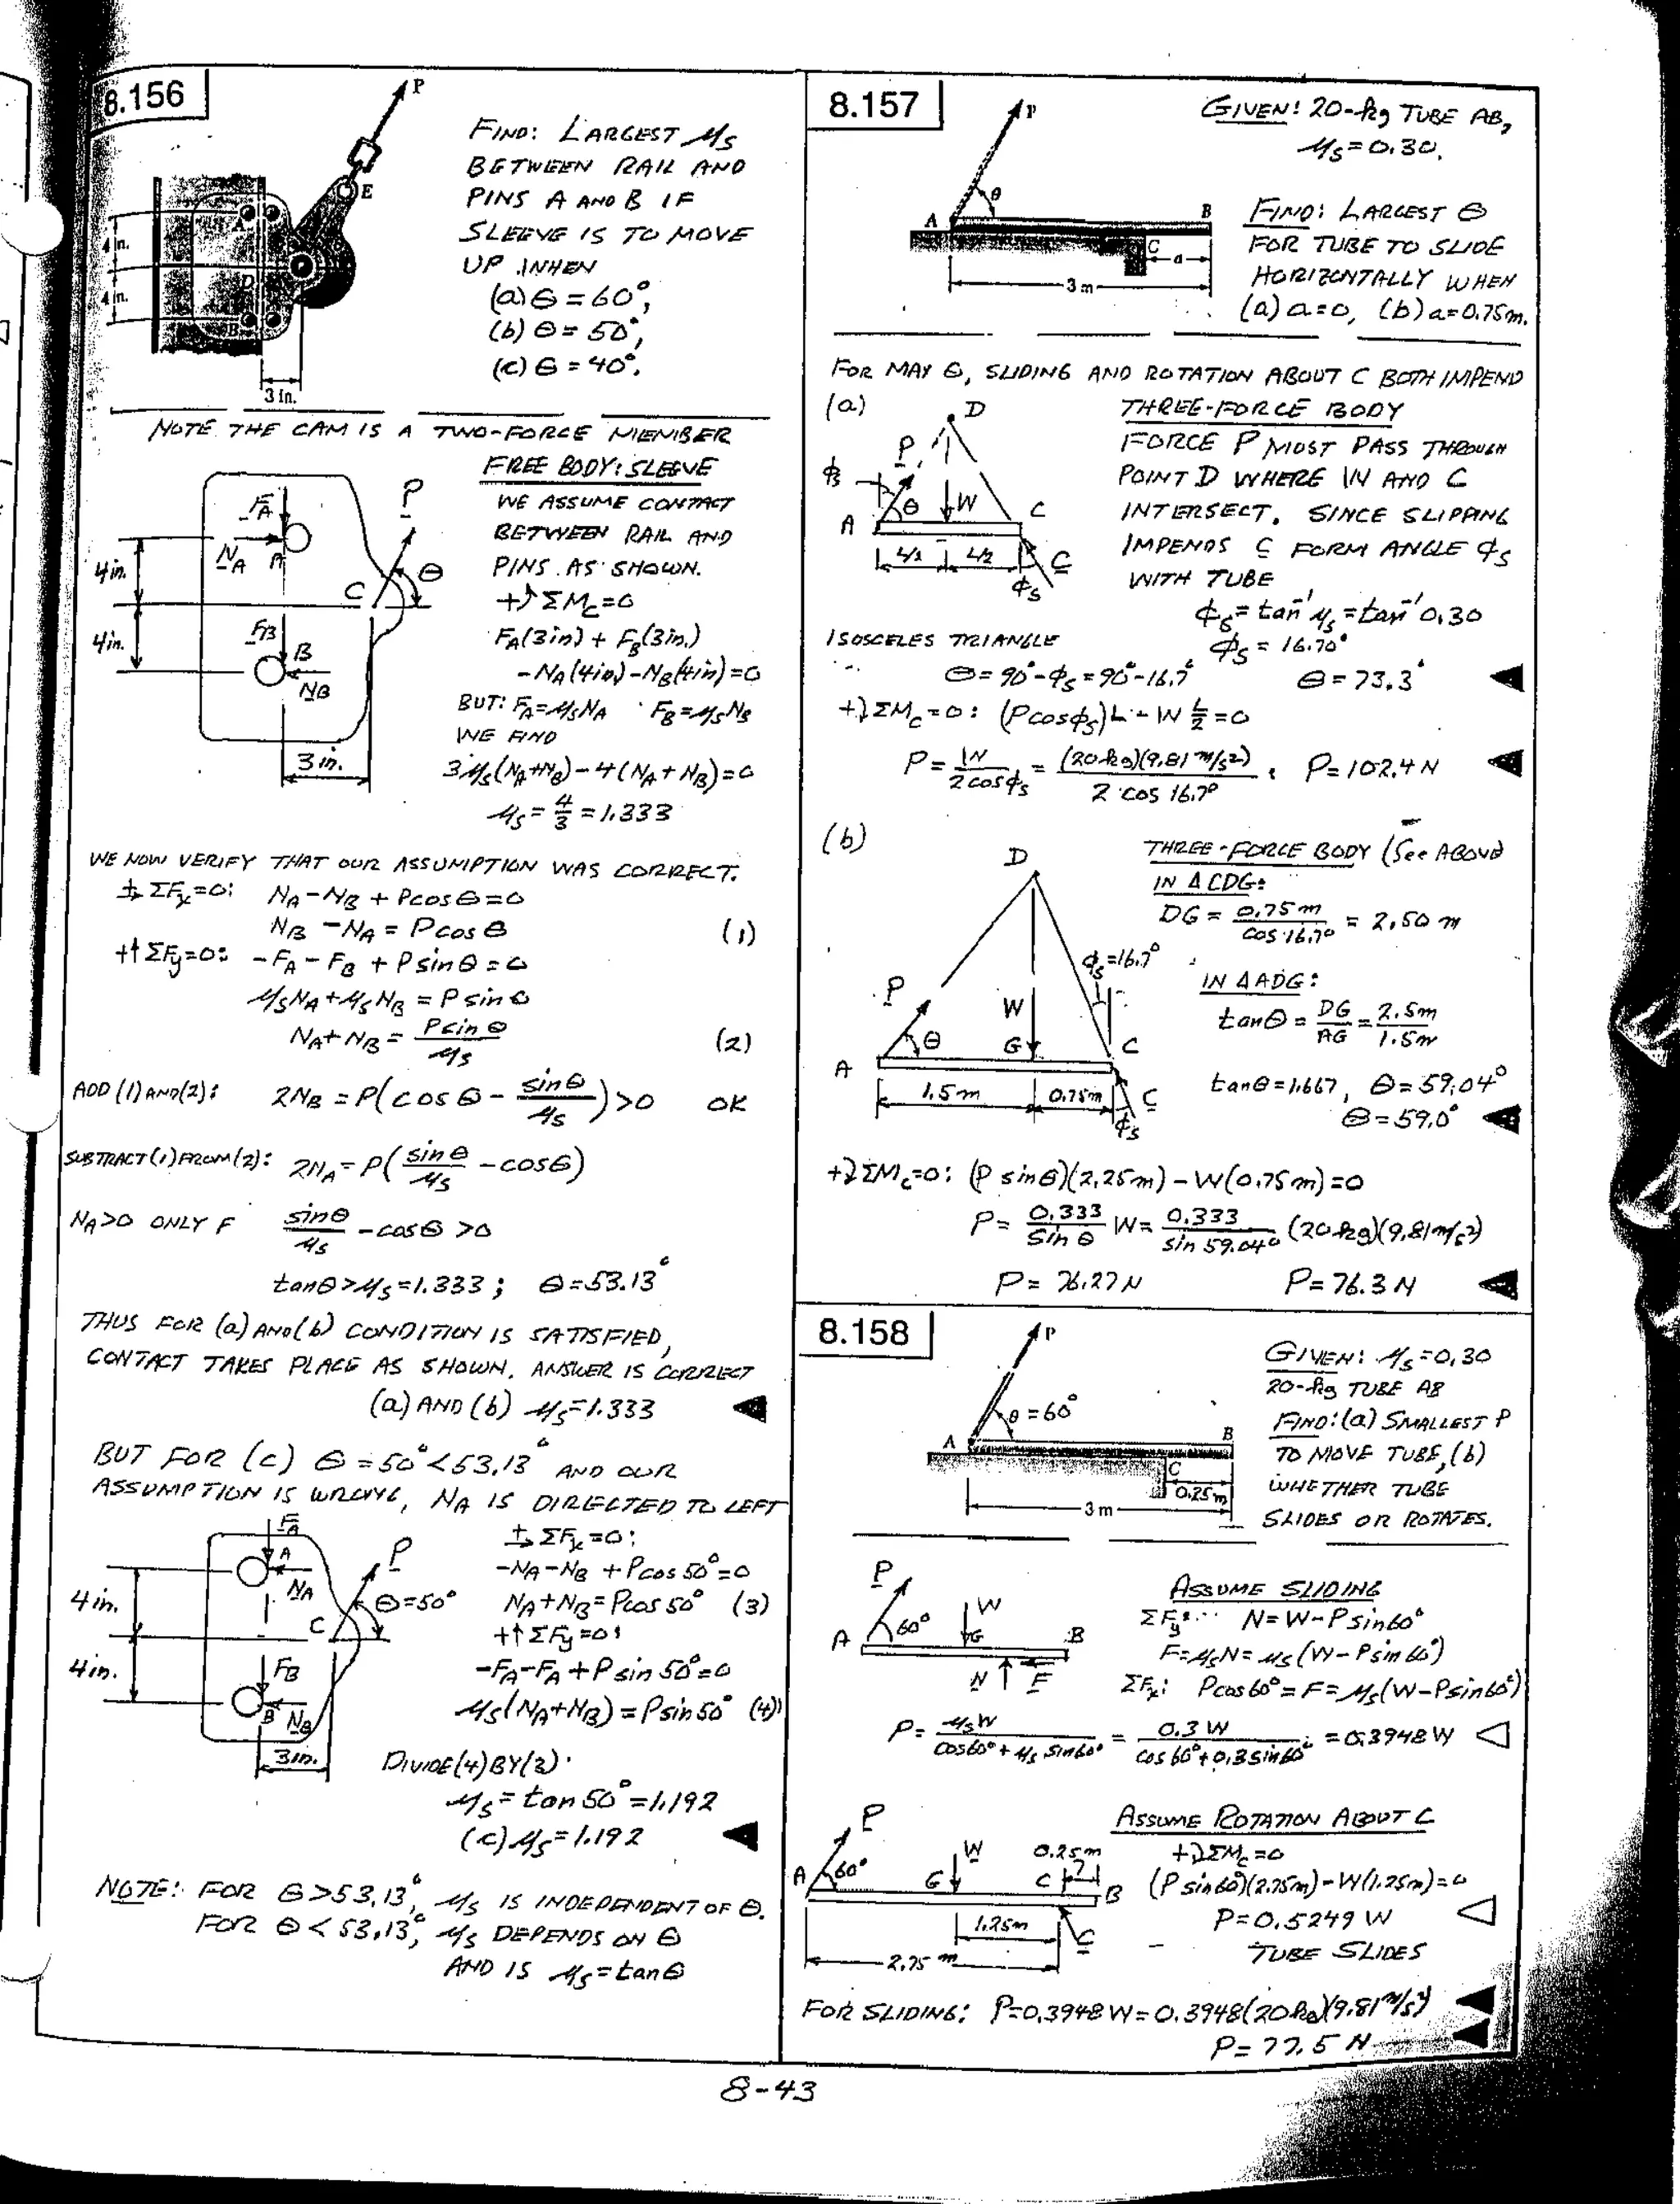 8.156
P
E
A
D
B
4 in.
4 in.
3 in.
FIND: LARGEST μs
BETWEEN RAIL AND
PINS A AND B IF
SLEEVE IS TO MOVE
UP WHEN
(a) θ = 60°,
(b) θ = 50°,
(c) θ = 40°.
NOTE THE CAM IS A TWO-FORCE MEMBER
FREE BODY: SLEEVE
WE ASSUME CONTACT
BETWEEN RAIL AND
PINS AS SHOWN.
FA
NA
A
P
C
θ
4in.
4in.
FB
B
NB
3 in.
+↺ ΣMC=0
FA(3in) + FB(3in.)
-NA(4in)-NB(4in)=0
BUT: FA=μsNA FB=μsNB
WE FIND
3μs(NA+NB)-4(NA+NB)=0
μs = 4/3 = 1.333
WE NOW VERIFY THAT OUR ASSUMPTION WAS CORRECT.
+→ ΣFx=0: NA-NB + Pcosθ=0
NB -NA = Pcosθ (1)
+↑ΣFy=0: -FA-FB + Psinθ=0
μsNA+μsNB = Psinθ
NA+NB = Psinθ/μs (2)
ADD (1) AND (2): 2NB = P(cosθ - sinθ/μs)>0 OK
SUBTRACT (1) FROM (2): 2NA = P(sinθ/μs - cosθ)
NA>0 ONLY F sinθ/μs - cosθ >0
tanθ>μs=1.333 ; θ=53.13°
THUS FOR (a) AND (b) CONDITION IS SATISFIED,
CONTACT TAKES PLACE AS SHOWN. ANSWER IS CORRECT
(a) AND (b) μs=1.333
BUT FOR (c) θ = 50°<53.13° AND OUR
ASSUMPTION IS WRONG, NA IS DIRECTED TO LEFT
FA
A
NA
P
θ=50°
C
4in.
4in.
FB
B
NB
3in.
+→ ΣFx=0:
-NA-NB +Pcos50°=0
NA+NB=Pcos50° (3)
+↑ΣFy=0:
-FA-FA+Psin50°=0
μs(NA+NB)=Psin50° (4)
DIVIDE (4) BY (3):
μs = tan50°=1.192
(c) μs=1.192
NOTE: FOR θ>53.13°, μs IS INDEPENDENT OF θ.
FOR θ<53.13°, μs DEPENDS ON θ
AND IS μs=tanθ
8.157
P
θ
A
B
C
a
3 m
GIVEN: 20-kg TUBE AB,
μs=0.30.
FIND: LARGEST θ
FOR TUBE TO SLIDE
HORIZONTALLY WHEN
(a) a=0, (b) a=0.75m.
FOR MAX θ, SLIDING AND ROTATION ABOUT C BOTH IMPEND
(a)
D
P
φs
W
θ
A
C
L/2
L/2
C
φs
THREE-FORCE BODY
FORCE P MUST PASS THROUGH
POINT D WHERE W AND C
INTERSECT. SINCE SLIPPING
IMPENDS C FORM ANGLE φs
WITH TUBE
φs=tan⁻¹μs=tan⁻¹0.30
φs = 16.70°
ISOSCELES TRIANGLE
θ=90°-φs=90°-16.7° θ=73.3°
+↻ΣMC=0: (Pcosφs)L-W L/2=0
P = W/(2cosφs) = (20kg)(9.81 m/s²)/(2 cos 16.7°) , P=102.4 N
(b)
D
φs=16.7°
P
W
θ
G
A
C
1.5m
0.75m
C
φs
THREE-FORCE BODY (See ABOVE)
IN ΔCDG:
DG = 0.75m/cos 16.7° = 2.50 m
IN ΔADG:
tanθ = DG/AG = 2.5m/1.5m
tanθ=1.667, θ=59.04°
θ=59.0°
+↻ΣMC=0: (P sinθ)(2.25m)-W(0.75m)=0
P = 0.333/sinθ W = 0.333/sin 59.04° (20kg)(9.81m/s²)
P= 76.27N P=76.3N
8.158
P
θ=60°
A
B
C
0.25m
3 m
GIVEN: μs=0.30
20-kg TUBE AB
FIND: (a) SMALLEST P
TO MOVE TUBE, (b)
WHETHER TUBE
SLIDES OR ROTATES.
P
60°
W
G
A
B
N
F
ASSUME SLIDING
ΣFy: N=W-Psin60°
F=μsN=μs(W-Psin60°)
ΣFx: Pcos60°=F=μs(W-Psin60°)
P = μsW/(cos60°+μs sin60°) = 0.3W/(cos60°+0.3sin60°) = 0.3948W
P
60°
W
0.25m
A
G
C
B
1.25m
C
2.75 m
ASSUME ROTATION ABOUT C
+↻ΣMC=0
(Psin60°)(2.75m)-W(1.25m)=0
P=0.5249W
TUBE SLIDES
FOR SLIDING: P=0.3948W=0.3948(20kg)(9.81m/s²)
P= 77.5 N
8-43